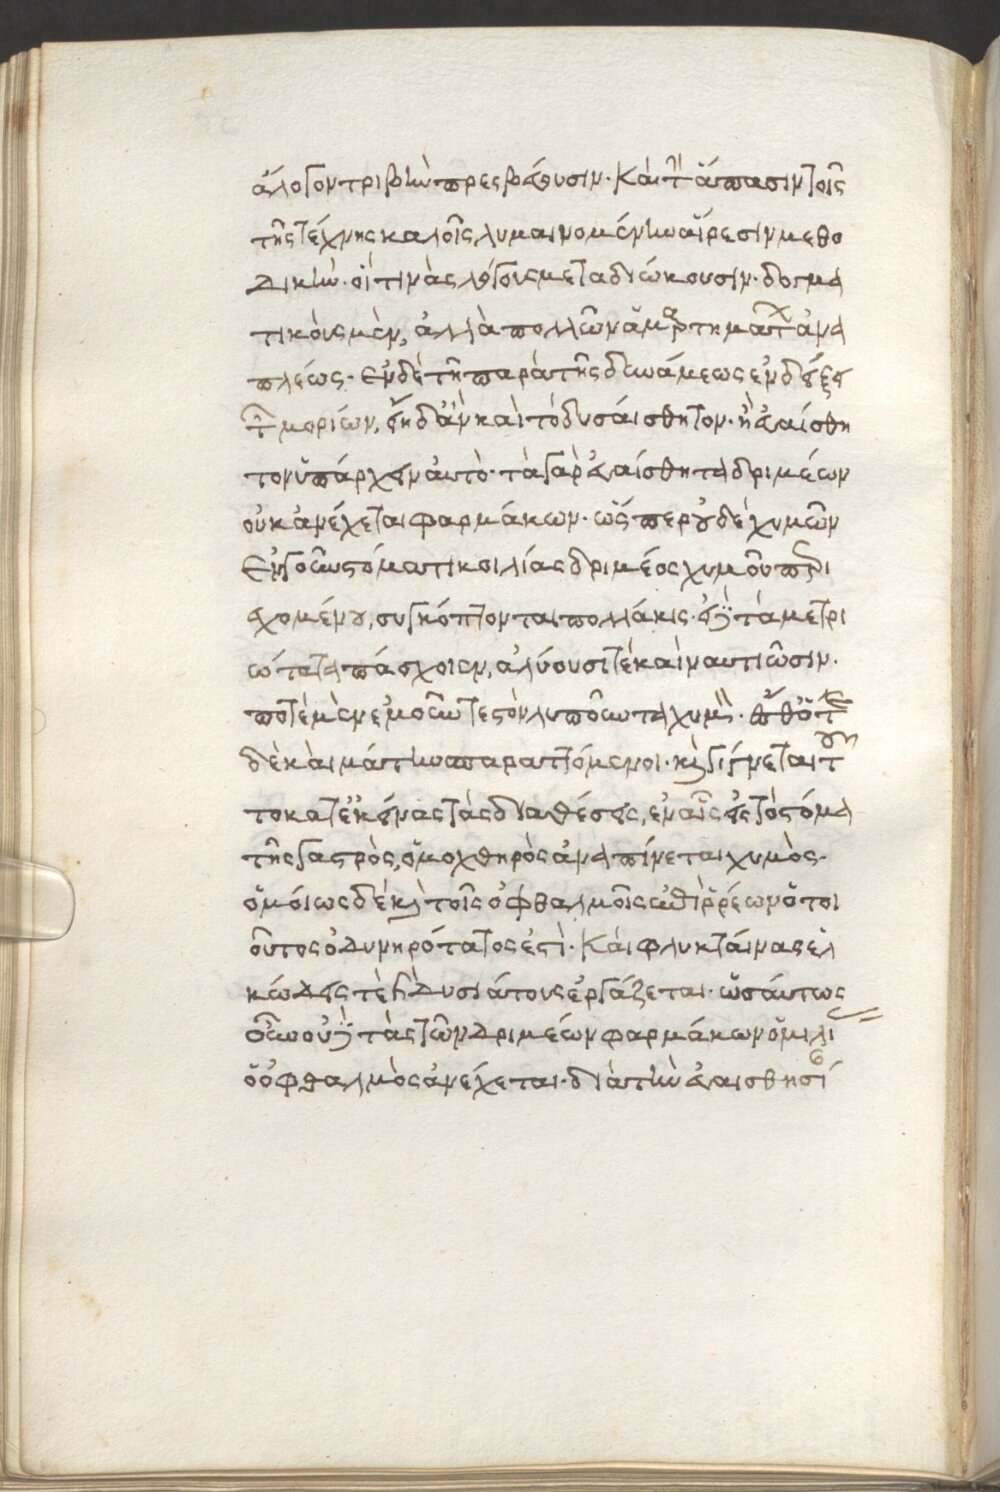 ἄλογον τριβὴν πρεσβεύουσιν· Καὶ τὴν ἅπασιν τοῖς
τῆς τέχνης καλοῖς λυμαινομένην αἵρεσιν μεθο
δικὴν· οἵ τινὰς λόγους μεταδιώκουσιν· δογμα
τικοὺς μὲν, ἀλλὰ πολλῶν ἁμαρτημάτων ἀνα
πλέως· Ἐν δὲ τῆ παρὰ τῆς δυνάμεως ἐνδείξει
τῶν μορίων, εἴη δ' ἂν καὶ τὸ δυσαίσθητον· ἢ εὐαίσθη
τον ὑπάρχειν αὐτὸ· τὰ γὰρ εὐαίσθητα δριμέων
οὐκ ἀνέχεται φαρμάκων· ὥσπερ οὐδὲ χυμῶν
Ἐν γοῦν στόματι κοιλίας δριμέος χυμοῦ περι
εχομένου, συγκόπτονται πολλάκις· εἰ δὲ τὰ μετρι
ώτατα πάσχοιεν, ἀλύουσί τε καὶ ναυτιῶσιν·
ποτὲ μὲν ἐμοῦντες τὸν λυποῦντα χυμὸν·
δὲ καὶ μάτην σπαραττόμενοι· καὶ γίγνεται
το κατ' ἐκείνας τὰς διαθέσεις, ἐν αἷς εἰς τὸ στόμα
τῆς γαστρὸς, ὁ μοχθηρὸς ἀναπίνεται χυμὸς·
ὁμοίως δὲ καὶ τοῖς ὀφθαλμοῖς ἐπιρρέων ὁ τοι
οῦτος ὀδυνηρότατος ἐστὶ· Καὶ φλυκταίνας ἑλ
κώδεις τὲ καὶ δυσιάτους ἐργάζεται· ὡσαύτως
οὖν οὐδὲ τὰς τῶν δριμέων φαρμάκων ὁμιλί
ὁ ὀφθαλμὸς ἀνέχεται· διὰ τὴν εὐαισθησί